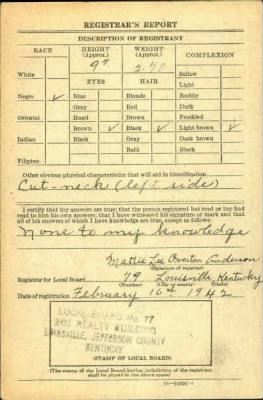 REGISTRAR'S REPORT
DESCRIPTION OF REGISTRANT
RACE HEIGHT (Approx.) WEIGHT (Approx.) COMPLEXION
Sallow
White EYES HAIR Light
Negro ✓ Blue Blonde Ruddy
Gray Red Dark
Oriental Hazel Brown Freckled
Brown ✓ Black ✓ Light brown ✓
Indian Black Gray Dark brown
Bald Black
Filipino
Other obvious physical characteristics that will aid in identification
Cut-neck (left side)
I certify that my answers are true; that the person registered has read or has had
read to him his own answers; that I have witnessed his signature or mark and that
all of his answers of which I have knowledge are true, except as follows:
None to my knowledge
Mattie Lee Overton Anderson
(Signature of registrar)
Registrar for Local Board 79 Louisville, Kentucky
(Number) (City or county) (State)
Date of registration February 16th 1942
LOCAL BOARD No. 77
201 REALTY BUILDING
LOUISVILLE, JEFFERSON COUNTY
KENTUCKY
(STAMP OF LOCAL BOARD)
(The stamp of the Local Board having jurisdiction of the registrant
shall be placed in the above space.)